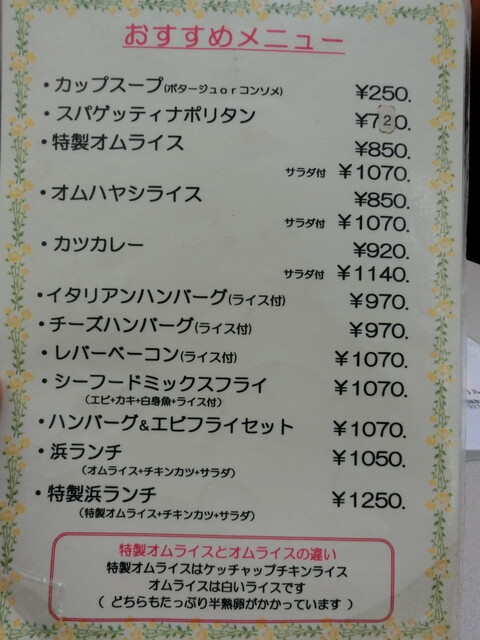 おすすめメニュー
・カップスープ(ポタージュorコンソメ) ¥250.
・スパゲッティナポリタン ¥720.
・特製オムライス ¥850.
サラダ付 ¥1070.
・オムハヤシライス ¥850.
サラダ付 ¥1070.
・カツカレー ¥920.
サラダ付 ¥1140.
・イタリアンハンバーグ(ライス付) ¥970.
・チーズハンバーグ(ライス付) ¥970.
・レバーベーコン(ライス付) ¥1070.
・シーフードミックスフライ ¥1070.
(エビ+カキ+白身魚+ライス付)
・ハンバーグ&エビフライセット ¥1070.
・浜ランチ ¥1050.
(オムライス+チキンカツ+サラダ)
・特製浜ランチ ¥1250.
(特製オムライス+チキンカツ+サラダ)
特製オムライスとオムライスの違い
特製オムライスはケッチャップチキンライス
オムライスは白いライスです
( どちらもたっぷり半熟卵がかかっています )